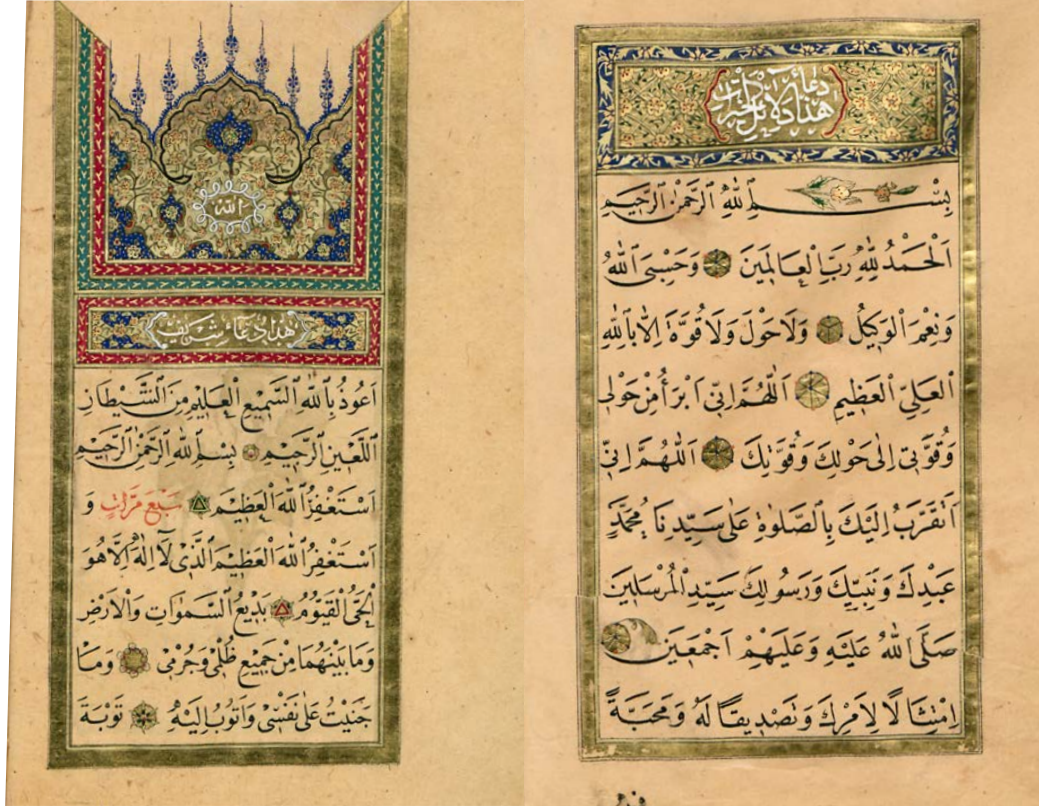 هذا دعاء دلائل الخيرات
بِسْمِ اللهِ الرَّحْمٰنِ الرَّحِيمِ
اَلْحَمْدُ لِلّٰهِ رَبِّ الْعَالَمِينَ وَحَسْبِىَ اللهُ
وَنِعْمَ الْوَكِيلُ وَلَا حَوْلَ وَلَا قُوَّةَ اِلَّا بِاللهِ
الْعَلِىِّ الْعَظِيمِ اَللّٰهُمَّ اِنِّى اَبْرَأُ مِنْ حَوْلِى
وَقُوَّتِى اِلٰى حَوْلِكَ وَقُوَّتِكَ اَللّٰهُمَّ اِنِّى
اَتَقَرَّبُ اِلَيْكَ بِالصَّلٰوةِ عَلٰى سَيِّدِنَا مُحَمَّدٍ
عَبْدِكَ وَنَبِيِّكَ وَرَسُولِكَ سَيِّدِ الْمُرْسَلِينَ
صَلَّى اللهُ عَلَيْهِ وَعَلَيْهِمْ اَجْمَعِينَ
اِمْتِثَالًا لِاَمْرِكَ وَتَصْدِيقًا لَهُ وَمَحَبَّةً
الله
هذا دعاء شريف
اَعُوذُ بِاللهِ السَّمِيعِ الْعَلِيمِ مِنَ الشَّيْطَانِ
اللَّعِينِ الرَّجِيمِ بِسْمِ اللهِ الرَّحْمٰنِ الرَّحِيمِ
اَسْتَغْفِرُ اللهَ الْعَظِيمَ سَبْعَ مَرَّاتٍ وَ
اَسْتَغْفِرُ اللهَ الْعَظِيمَ الَّذِى لَا اِلٰهَ اِلَّا هُوَ
الْحَىُّ الْقَيُّومُ بَدِيعُ السَّمٰوَاتِ وَالْاَرْضِ
وَمَا بَيْنَهُمَا مِنْ جَمِيعِ ظُلْمِى وَجُرْمِى وَمَا
جَنَيْتُ عَلٰى نَفْسِى وَاَتُوبُ اِلَيْهِ تَوْبَةَ